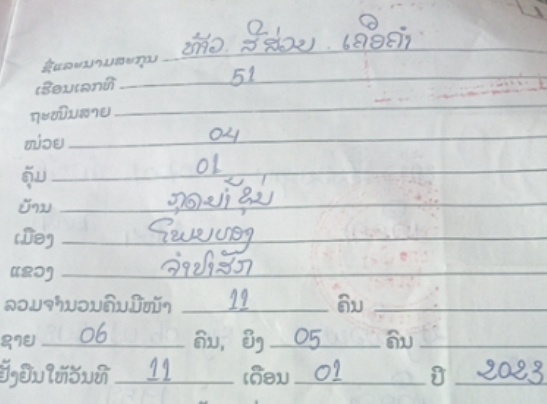 ຊື່ແລະນາມສະກຸນ ທ້າວ ສີສ່ວຍ ເຄືອຄໍາ
ເຮືອນເລກທີ 51
ຖະໜົນສາຍ
ໜ່ວຍ 04
ຄຸ້ມ 01
ບ້ານ ກຸດນໍ້າຂຸ່ນ
ເມືອງ ໂພນທອງ
ແຂວງ ຈໍາປາສັກ
ລວມຈໍານວນຄົນມີໜ້າ 11 ຄົນ
ຊາຍ 06 ຄົນ, ຍິງ 05 ຄົນ
ຢັ້ງຢືນໃຫ້ວັນທີ 11 ເດືອນ 01 ປີ 2023